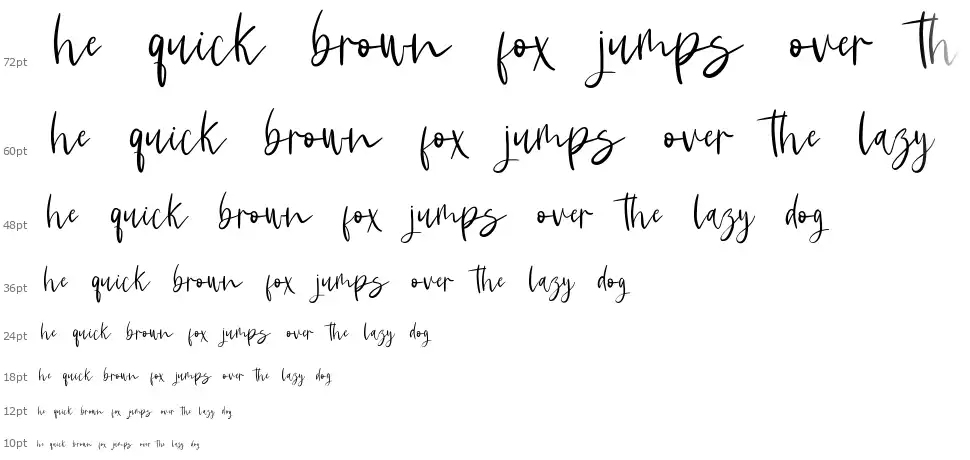 72pt he quick brown fox jumps over th
60pt he quick brown fox jumps over the lazy
48pt he quick brown fox jumps over the lazy dog
36pt he quick brown fox jumps over the lazy dog
24pt he quick brown fox jumps over the lazy dog
18pt he quick brown fox jumps over the lazy dog
12pt he quick brown fox jumps over the lazy dog
10pt he quick brown fox jumps over the lazy dog